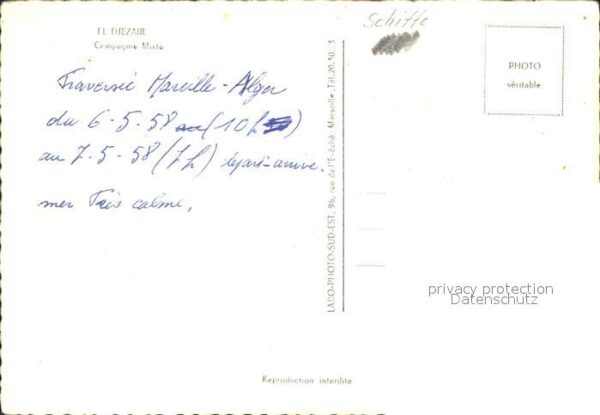 EL DJEZAIR
Compagnie Mixte
Schiffe
PHOTO
véritable
Traversée Marseille-Alger
du 6-5-58 (10h)
au 7-5-58 (7h) arrivé.
mer Très calme.
LABO-PHOTO-SUD-EST, 96, rue de l'Evêché, Marseille, Tél. 20.10. 3
privacy protection
Datenschutz
Reproduction interdite